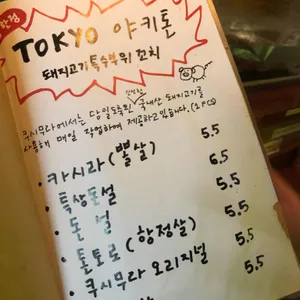 한정
TOKYO 야키톤
돼지고기 특수부위 꼬치
쿠시무라에서는 당일도축된 신선한 국내산 돼지고기를
사용해 매일 작업하며 제공하고 있습니다. (1PCS)
· 카시라 (뽈살) 5.5
· 특상돈설 6.5
· 돈설 5.5
· 톤토로 (항정살) 5.5
· 쿠시무라 오리지널 5.5